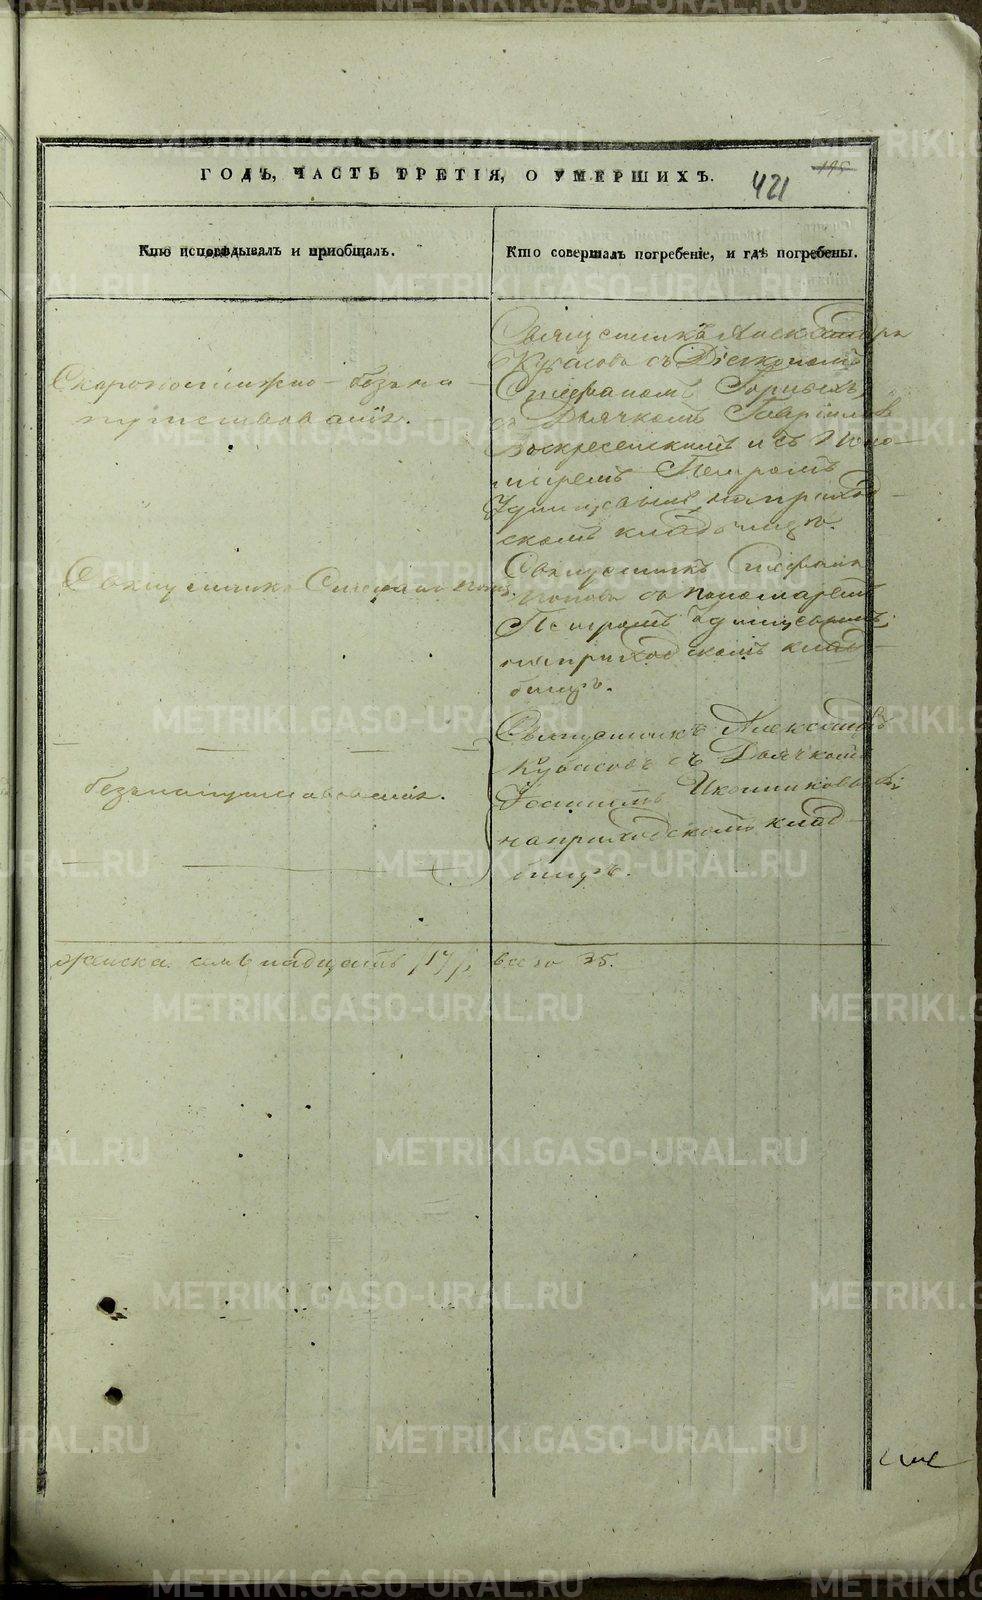 ГОДЪ, ЧАСТЬ ТРЕТІЯ, О УМЕРШИХЪ.
195
421
Кто исповѣдывалъ и пріобщалъ.
Кто совершалъ погребеніе, и гдѣ погребены.
Скоропостижно – безъ на
путствованія.
Священникъ Александръ
Кубасовъ съ Діакономъ
Стефаномъ
съ Дьячкомъ Гавріиломъ
Воскресенскимъ и съ Поно–
маремъ Петромъ
на приход–
скомъ кладбищѣ.
Священникъ Стефанъ Попов.
Священникъ Стефанъ
Поповъ съ пономаремъ
Петромъ
на приходскомъ клад–
бищѣ.
безъ напутствованія.
Священникъ Александръ
Кубасовъ съ Дьячкомъ
Иконниковымъ
на приходскомъ клад–
бищѣ.
женска семнадцать /17/, всего 35.
METRIKI.GASO-URAL.RU